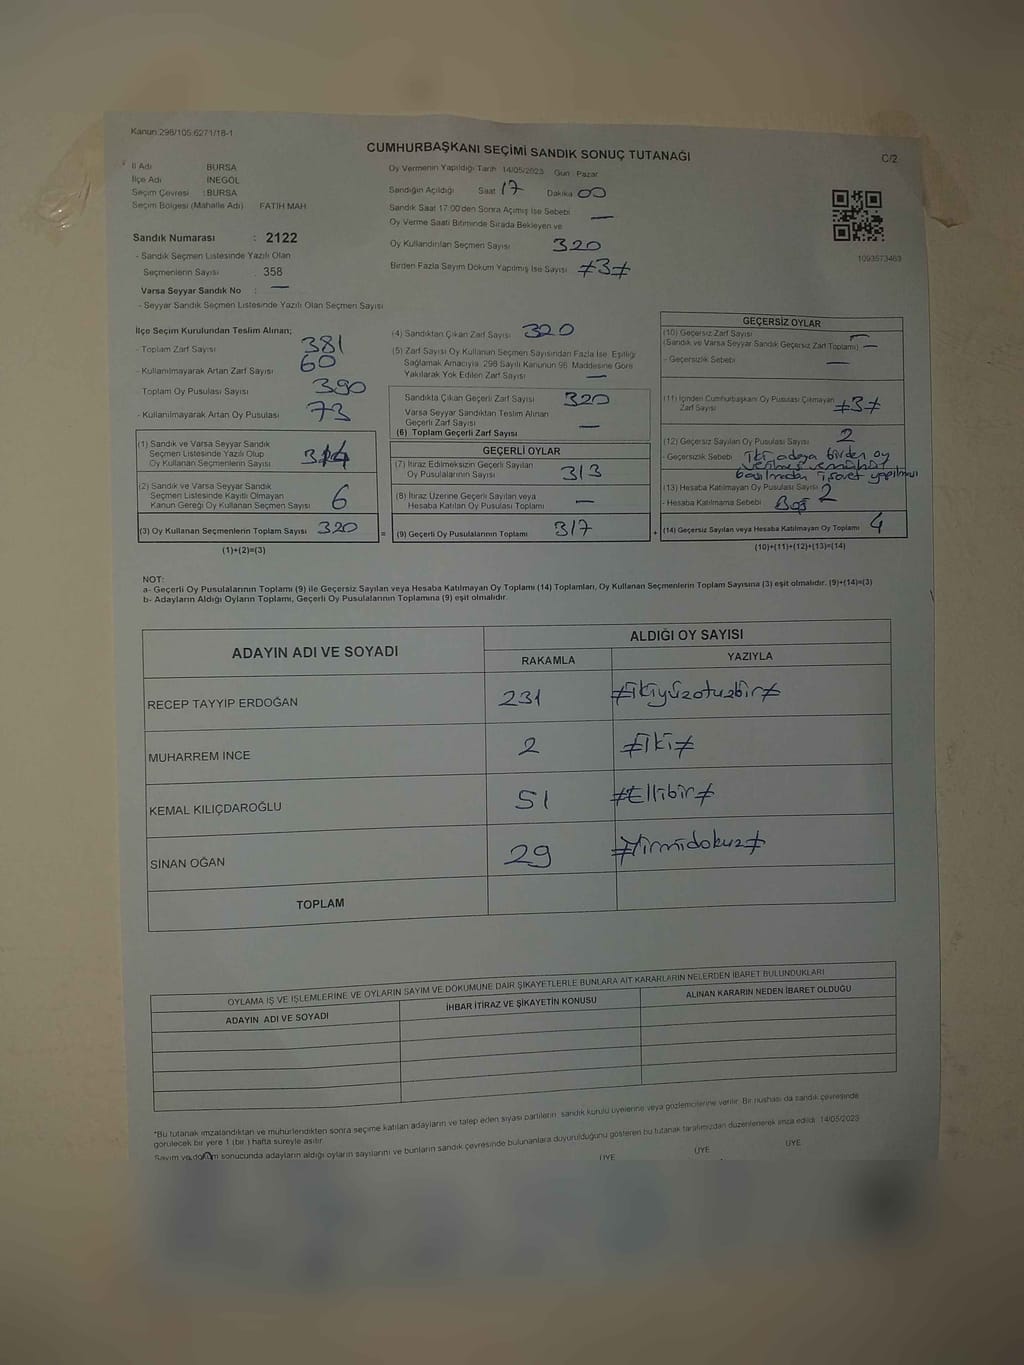 Kanun:298/105.6271/18-1
CUMHURBAŞKANI SEÇİMİ SANDIK SONUÇ TUTANAĞI
C/2
İl Adı BURSA
İlçe Adı İNEGÖL
Seçim Çevresi : BURSA
Seçim Bölgesi (Mahalle Adı) FATİH MAH
Sandık Numarası : 2122
- Sandık Seçmen Listesinde Yazılı Olan
Seçmenlerin Sayısı : 358
Varsa Seyyar Sandık No : —
- Seyyar Sandık Seçmen Listesinde Yazılı Olan Seçmen Sayısı
Oy Vermenin Yapıldığı Tarih 14/05/2023 Gün Pazar
Sandığın Açıldığı Saat 17 Dakika 00
Sandık Saat 17:00'den Sonra Açımış İse Sebebi —
Oy Verme Saati Bitiminde Sırada Bekleyen ve
Oy Kullandırılan Seçmen Sayısı 320
Birden Fazla Sayım Döküm Yapılmış İse Sayısı ≠3≠
1093573463
İlçe Seçim Kurulundan Teslim Alınan;
- Toplam Zarf Sayısı 381
- Kullanılmayarak Artan Zarf Sayısı 60
Toplam Oy Pusulası Sayısı 390
- Kullanılmayarak Artan Oy Pusulası 73
(1) Sandık ve Varsa Seyyar Sandık
Seçmen Listesinde Yazılı Olup
Oy Kullanan Seçmenlerin Sayısı 314
(2) Sandık ve Varsa Seyyar Sandık
Seçmen Listesinde Kayıtlı Olmayan
Kanun Gereği Oy Kullanan Seçmen Sayısı 6
(3) Oy Kullanan Seçmenlerin Toplam Sayısı 320
(1)+(2)=(3)
(4) Sandıktan Çıkan Zarf Sayısı 320
(5) Zarf Sayısı Oy Kullanan Seçmen Sayısından Fazla İse, Eşitliği
Sağlamak Amacıyla, 298 Sayılı Kanunun 98. Maddesine Göre
Yakılarak Yok Edilen Zarf Sayısı —
Sandıkta Çıkan Geçerli Zarf Sayısı 320
Varsa Seyyar Sandıktan Teslim Alınan
Geçerli Zarf Sayısı —
(6) Toplam Geçerli Zarf Sayısı
GEÇERLİ OYLAR
(7) İtiraz Edilmeksizin Geçerli Sayılan
Oy Pusulalarının Sayısı 313
(8) İtiraz Üzerine Geçerli Sayılan veya
Hesaba Katılan Oy Pusulası Toplamı —
= (9) Geçerli Oy Pusulalarının Toplamı 317 +
GEÇERSİZ OYLAR
(10) Geçersiz Zarf Sayısı
(Sandık ve Varsa Seyyar Sandık Geçersiz Zarf Toplamı) —
- Geçersizlik Sebebi —
(11) İçinden Cumhurbaşkanı Oy Pusulası Çıkmayan
Zarf Sayısı ≠3≠
(12) Geçersiz Sayılan Oy Pusulası Sayısı 2
- Geçersizlik Sebebi iki adaya birden oy
verilmiş ve mühür
basılmadan işaret yapılmış
(13) Hesaba Katılmayan Oy Pusulası Sayısı 2
- Hesaba Katılmama Sebebi Boş
(14) Geçersiz Sayılan veya Hesaba Katılmayan Oy Toplamı 4
(10)+(11)+(12)+(13)=(14)
NOT:
a- Geçerli Oy Pusulalarının Toplamı (9) ile Geçersiz Sayılan veya Hesaba Katılmayan Oy Toplamı (14) Toplamları, Oy Kullanan Seçmenlerin Toplam Sayısına (3) eşit olmalıdır. (9)+(14)=(3)
b- Adayların Aldığı Oyların Toplamı, Geçerli Oy Pusulalarının Toplamına (9) eşit olmalıdır.
ADAYIN ADI VE SOYADI
ALDIĞI OY SAYISI
RAKAMLA YAZIYLA
RECEP TAYYIP ERDOĞAN 231 ≠ikiyüzotuzbir≠
MUHARREM İNCE 2 ≠iki≠
KEMAL KILIÇDAROĞLU 51 ≠Ellibir≠
SİNAN OĞAN 29 ≠Yirmidokuz≠
TOPLAM
OYLAMA İŞ VE İŞLEMLERİNE VE OYLARIN SAYIM VE DÖKÜMÜNE DAİR ŞİKAYETLERLE BUNLARA AİT KARARLARIN NELERDEN İBARET BULUNDUKLARI
ADAYIN ADI VE SOYADI İHBAR İTİRAZ VE ŞİKAYETİN KONUSU ALINAN KARARIN NEDEN İBARET OLDUĞU
*Bu tutanak imzalandıktan ve mühürlendikten sonra seçime katılan adayların ve talep eden siyasi partilerin sandık kurulu üyelerine veya gözlemcilerine verilir. Bir nüshası da sandık çevresinde
görülecek bir yere 1 (bir ) hafta süreyle asılır.
Sayım ve döküm sonucunda adayların aldığı oyların sayılarını ve bunların sandık çevresinde bulunanlara duyurulduğunu gösteren bu tutanak tarafımızdan düzenlenerek imza edildi. 14/05/2023
ÜYE ÜYE ÜYE